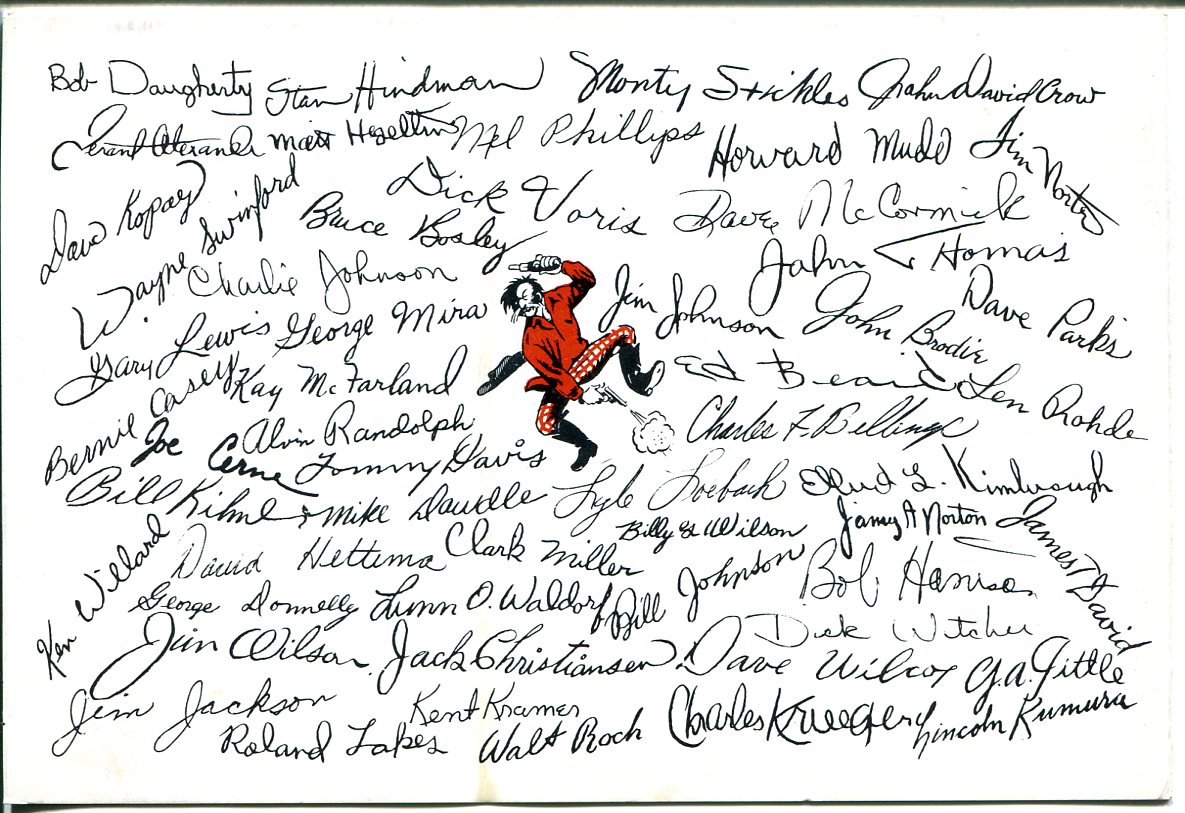 Bob Daugherty Stan Hindman Monty Stickles John David Crow
Matt Hazeltine Mel Phillips Howard Mudd Jim Norton
Dave Kopay Wayne Swinford Dick Voris Dave McCormick
Bruce Bosley John Thomas
Charlie Johnson Jim Johnson John Brodie Dave Parks
Gary Lewis George Mira
Bernie Casey Kay McFarland Ed Beard Len Rohde
Joe Cerne Alvin Randolph Charles F. Billings
Bill Kilmer Tommy Davis
Mike Dowdle Lyle Loebach L. Kimbrough
Ken Willard David Hettema Clark Miller Billy G Wilson James A Norton James T David
George Donnelly Lynn O. Waldorf Bill Johnson Bob Harrison
Jim Wilson Jack Christiansen Dave Wilcox Dick Witcher Y.A. Tittle
Jim Jackson Kent Kramer Charles Krueger Lincoln Kimura
Roland Lakes Walt Roch